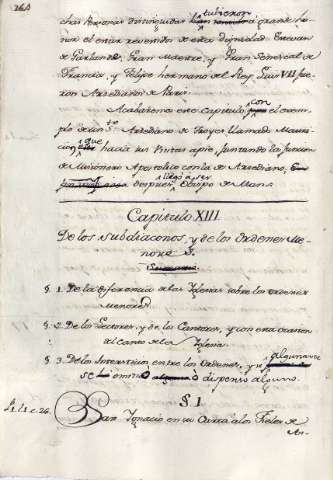 264
tubieron
chas Personas distinguidas á grande ho-
nor el estár revestido de esta dignidad. Estevan
de Garlande, Gran Maestre, y Gran Senescal de
Francia, y Felipe hermano del Rey Luis VII fue-
ron Arcedianos de Paris.
Acabaremos este Capitulo con el exem-
plo de un Sto Arcediano de Troyes llamado Mauri-
que
cio hacia sus Visitas apie, juntando la funcion
de Misionero Apostolico con la de Arcediano.
llegó a ser
despues Obispo de Mans.
Capitulo XIII
De los Subdiaconos, y de los Ordenes Me-
nores.
§. 1. De la diferencia de las Iglesias sobre los ordenes
menores.
§. 2. De los Lectores, y de los Cantores, y con esta ocasion
al Canto de la Iglesia.
§. 3. De los Intersticios entre los Ordenes, y si algunavez
se omitió ó dispensó alguno.
§ 1
San Ignacio en su Carta á los Fieles de
An-